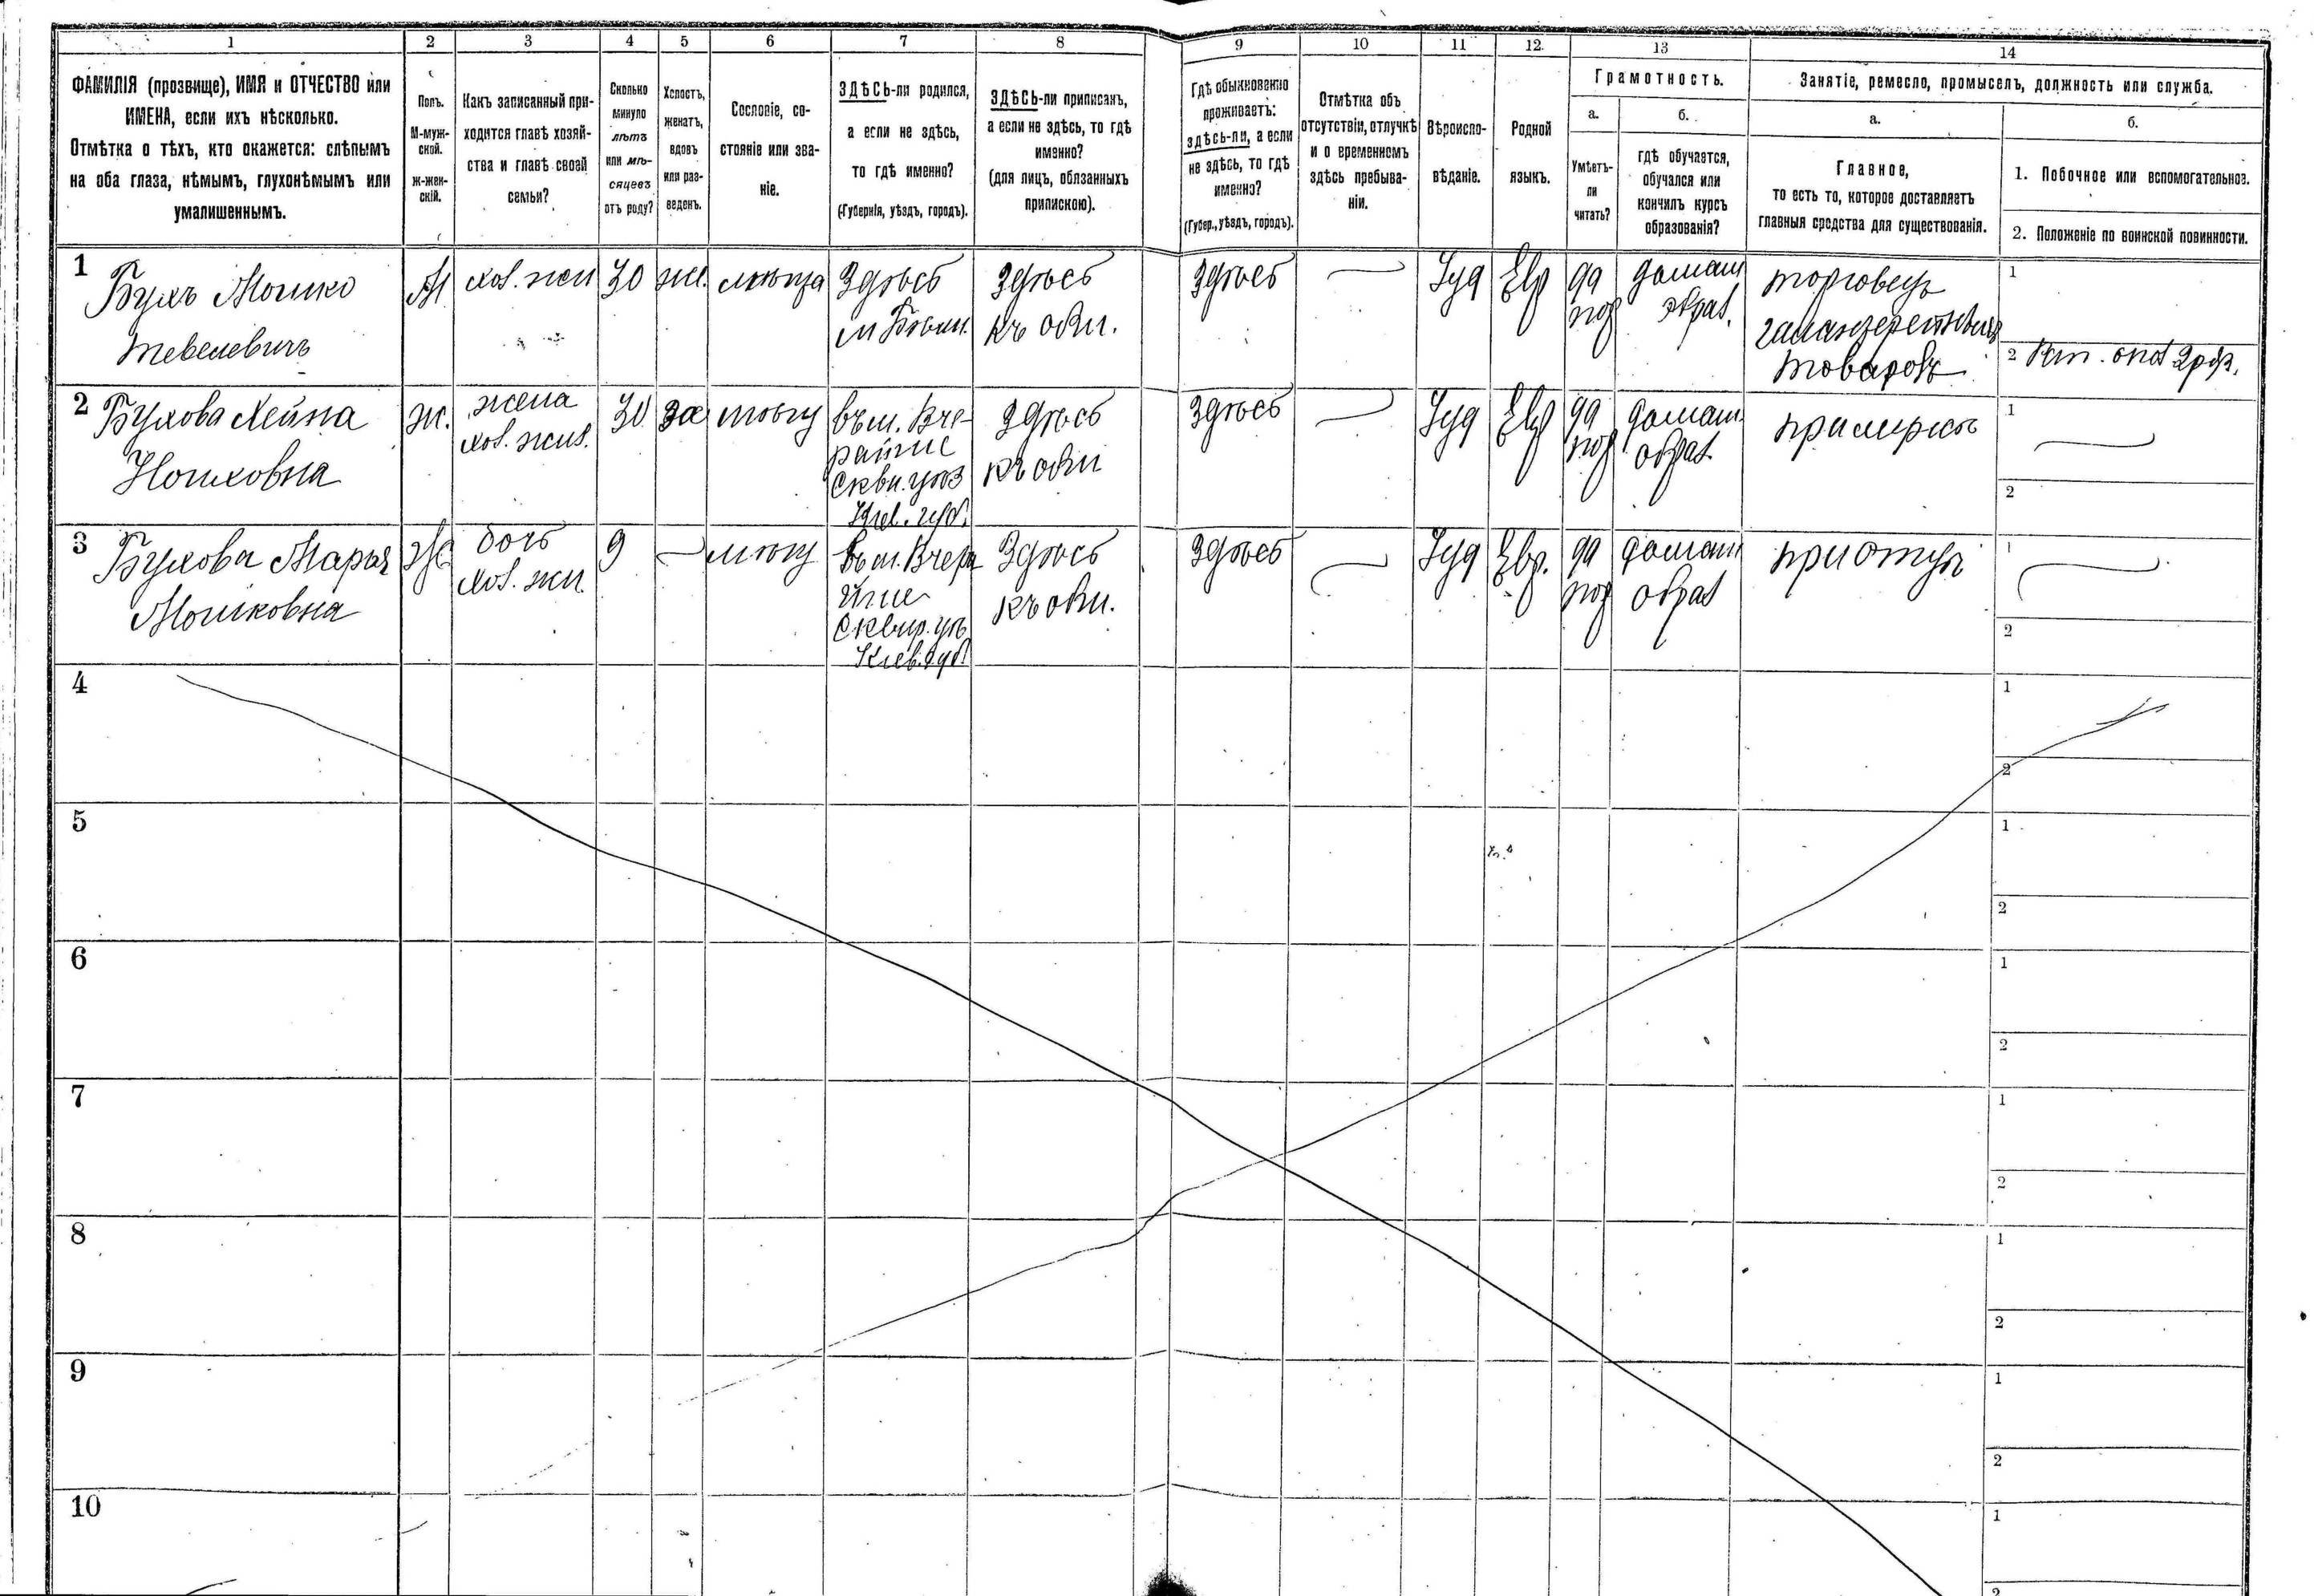 1 2 3 4 5 6 7 8 9 10 11 12. 13 14
ФАМИЛІЯ (прозвище), ИМЯ и ОТЧЕСТВО или
ИМЕНА, если ихъ нѣсколько.
Отмѣтка о тѣхъ, кто окажется: слѣпымъ
на оба глаза, нѣмымъ, глухонѣмымъ или
умалишеннымъ.
Полъ.
М-муж-
ской.
ж-жен-
скій.
Какъ записанный при-
ходится главѣ хозяй-
ства и главѣ своей
семьи?
Сколько
минуло
лѣтъ
или мѣ-
сяцевъ
отъ роду?
Холостъ,
женатъ,
вдовъ
или раз-
веденъ.
Сословіе, со-
стояніе или зва-
ніе.
ЗДѢСЬ-ли родился,
а если не здѣсь,
то гдѣ именно?
(Губернія, уѣздъ, городъ).
ЗДѢСЬ-ли приписанъ,
а если не здѣсь, то гдѣ
именно?
(для лицъ, обязанныхъ
припискою).
Гдѣ обыкновенно
проживаетъ:
здѣсь-ли, а если
не здѣсь, то гдѣ
именно?
(Губер., уѣздъ, городъ).
Отмѣтка объ
отсутствіи, отлучкѣ
и о временномъ
здѣсь пребыва-
ніи.
Вѣроиспо-
вѣданіе.
Родной
языкъ.
Грамотность.
а.
Умѣетъ-
ли
читать?
б.
гдѣ обучается,
обучался или
кончилъ курсъ
образованія?
Занятіе, ремесло, промыселъ, должность или служба.
а.
Главное,
то есть то, которое доставляетъ
главныя средства для существованія.
б.
1. Побочное или вспомогательное.
2. Положеніе по воинской повинности.
1
Бухъ Мошко
Тевелевичъ
М
хоз. жи
30
же.
Здѣсь
Здѣсь
къ общ.
Здѣсь
Іуд
Евр
да
домаш
торговецъ
товаровъ
1
2
2
Бухова Хейна
ж.
жена
хоз. жил.
30
за
въ м. Вче-
райше
Сквир. уѣз
Кіев. губ.
Здѣсь
къ общ
Здѣсь
Іуд
Евр
да
домаш
образ.
при мужѣ
1
2
3
Бухова Марья
Мошковна
Ж
дочь
хоз. жи.
9
въ м. Вчера
йше
Сквир. уѣ
Кіев. губ
Здѣсь
къ общ.
Здѣсь
Іуд
Евр.
да
домаш
образ
при отцѣ
1
2
4
1
2
5
1
2
6
1
2
7
1
2
8
1
2
9
1
2
10
1
2